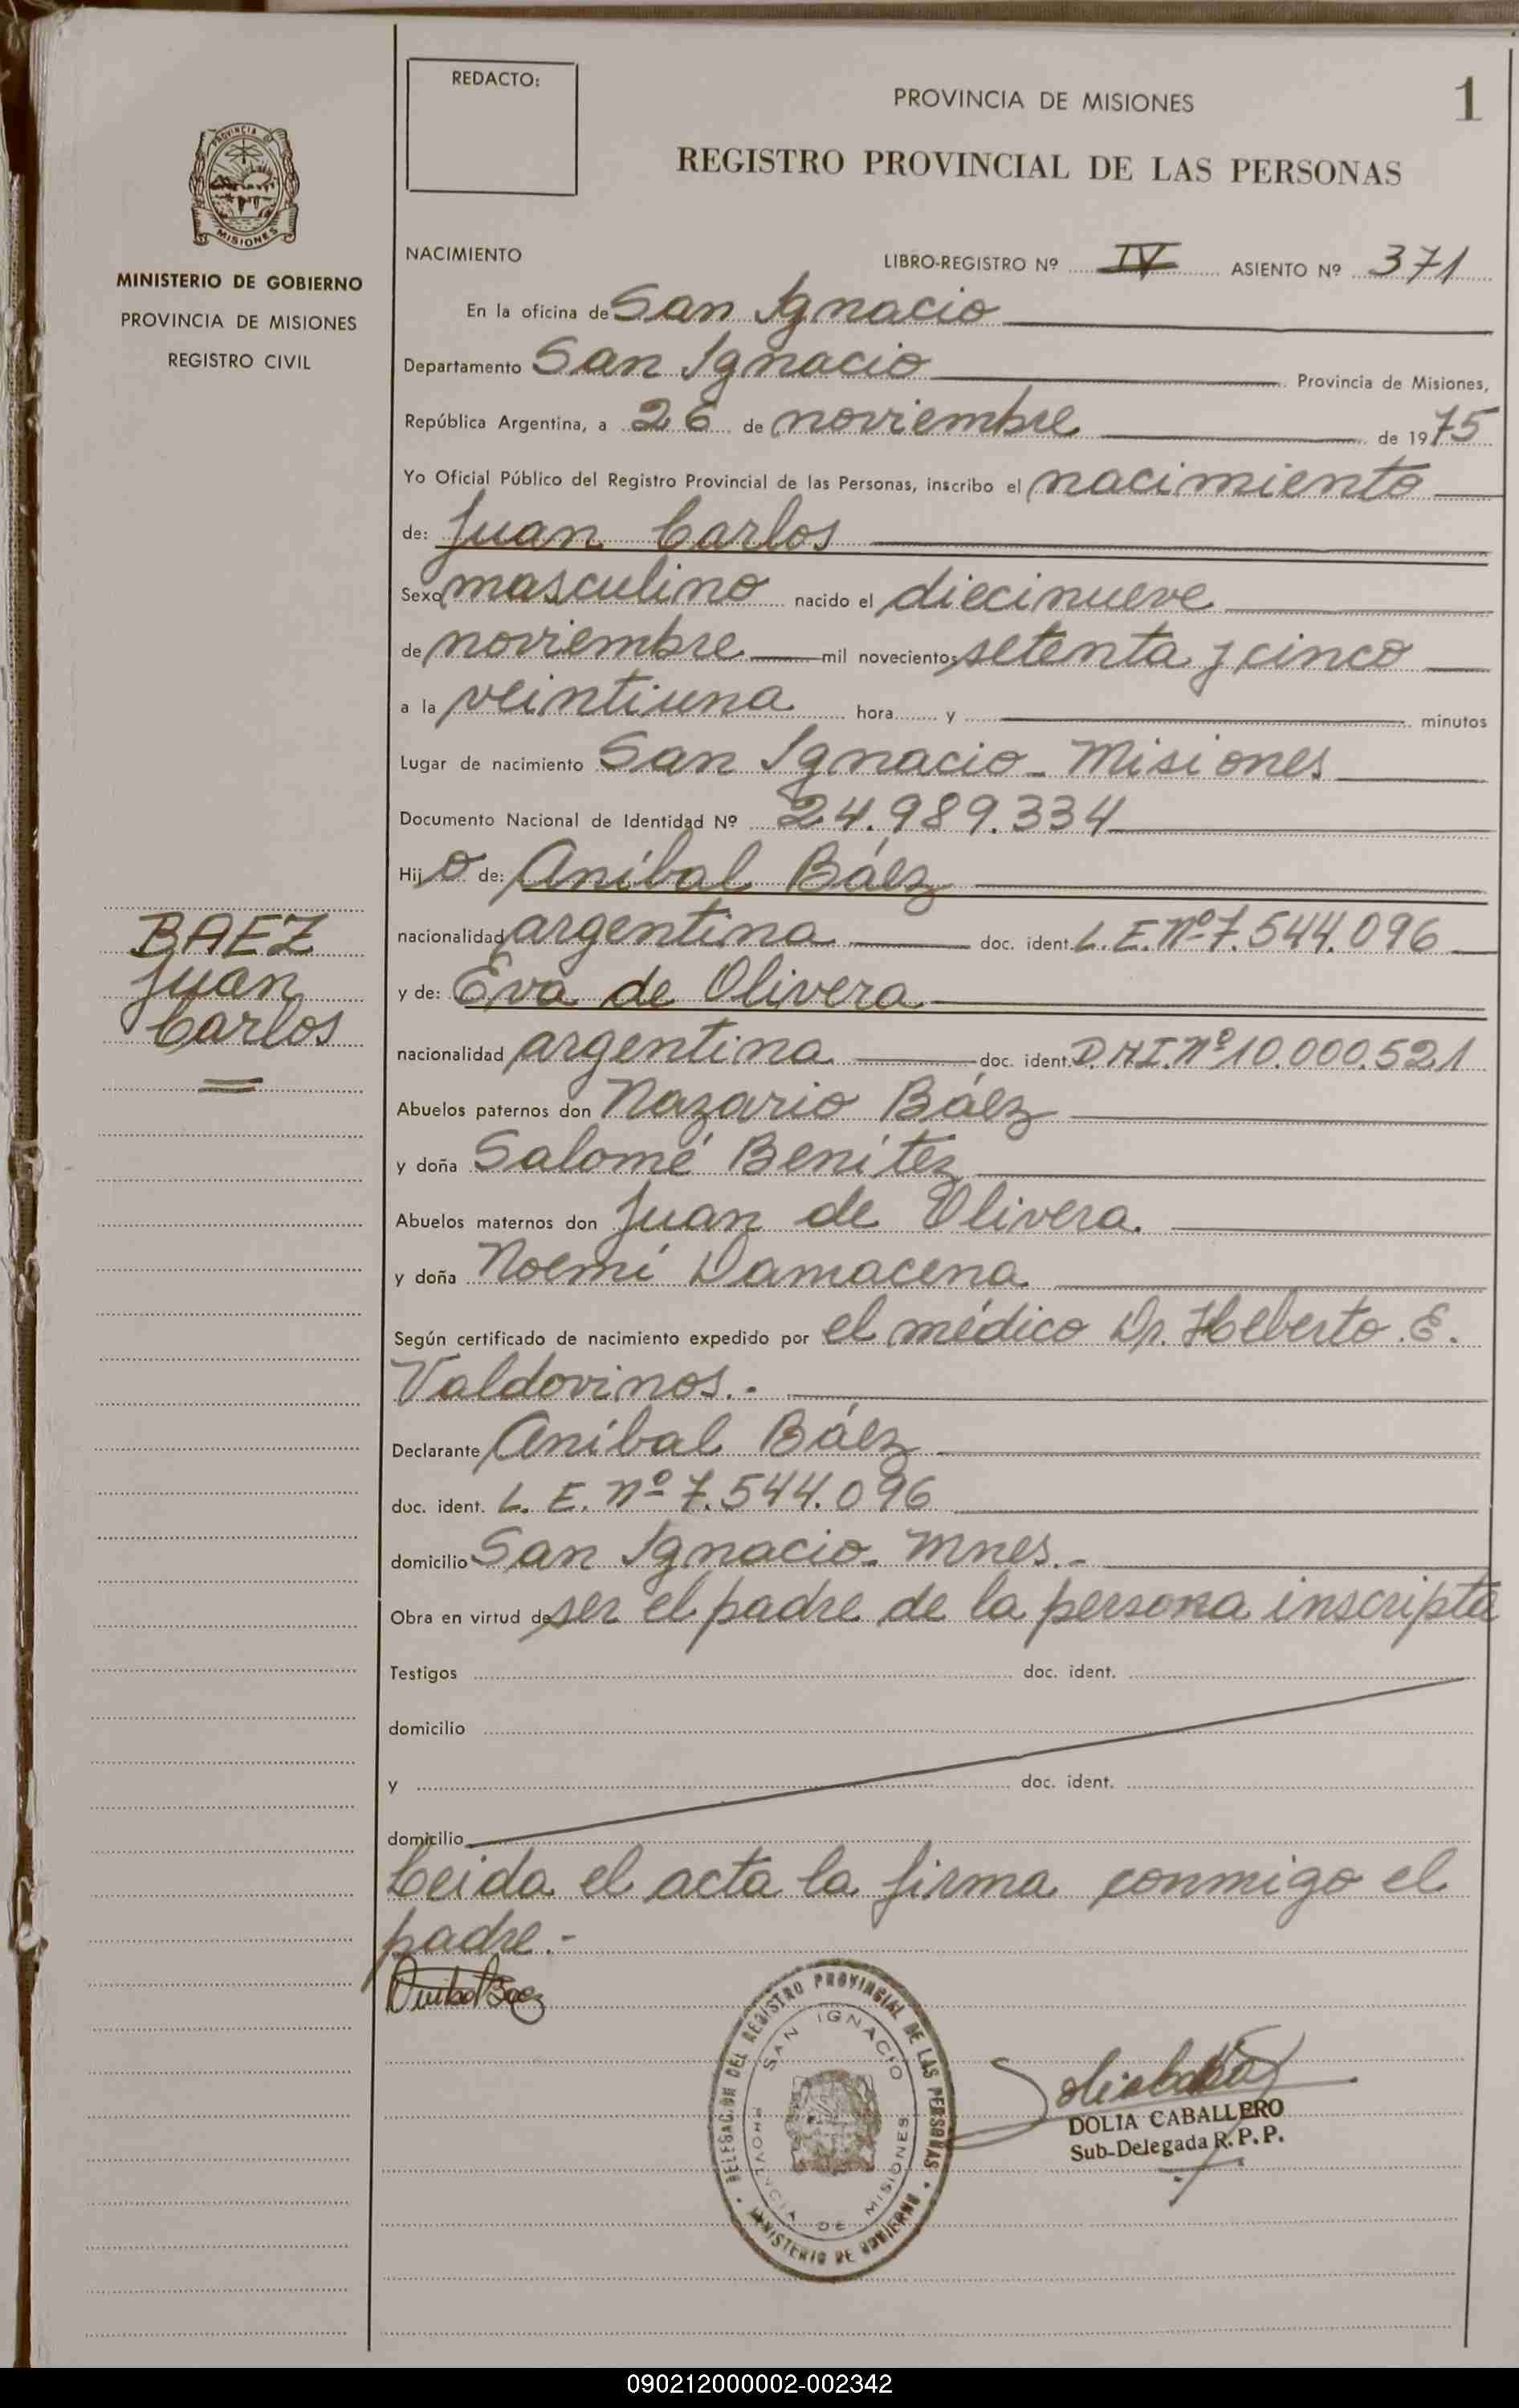 REDACTO:
1
PROVINCIA DE MISIONES
REGISTRO PROVINCIAL DE LAS PERSONAS
PROVINCIA DE
MISIONES
MINISTERIO DE GOBIERNO
PROVINCIA DE MISIONES
REGISTRO CIVIL
NACIMIENTO LIBRO-REGISTRO Nº IV ASIENTO Nº 371
En la oficina de San Ignacio
Departamento San Ignacio Provincia de Misiones,
República Argentina, a 26 de noviembre de 1975
Yo Oficial Público del Registro Provincial de las Personas, inscribo el nacimiento
de: Juan Carlos
Sexo masculino nacido el diecinueve
de noviembre mil novecientos setenta y cinco
a la veintiuna hora y minutos
Lugar de nacimiento San Ignacio - Misiones
Documento Nacional de Identidad Nº 24.989.334
Hijo de: Aníbal Báez
nacionalidad argentina doc. ident. L. E. nº 7.544.096
y de: Eva de Olivera
nacionalidad argentina doc. ident. D.N.I. nº 10.000.521
Abuelos paternos don Nazario Báez
y doña Salomé Benítez
Abuelos maternos don Juan de Olivera.
y doña Noemí Damacena
Según certificado de nacimiento expedido por el médico Dr. Heberto E.
Valdovinos.-
Declarante Aníbal Báez
doc. ident. L. E. nº 7.544.096
domicilio San Ignacio - Mnes.-
Obra en virtud de ser el padre de la persona inscripta
Testigos doc. ident.
domicilio
y doc. ident.
domicilio
Leida el acta la firma conmigo el
padre.-
BAEZ
Juan
Carlos
Anibal Baez
DELEGACION DEL REGISTRO PROVINCIAL DE LAS PERSONAS
SAN IGNACIO
PROVINCIA DE MISIONES
MINISTERIO DE GOBIERNO
DOLIA CABALLERO
Sub-Delegada R.P.P.
090212000002-002342